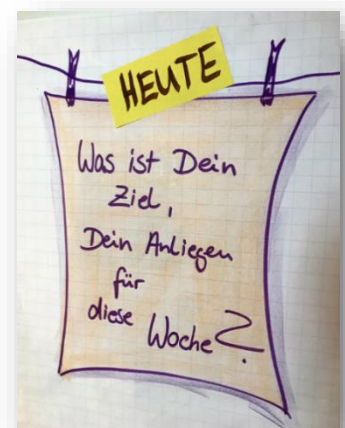 HEUTE
Was ist Dein
Ziel,
Dein Anliegen
für
diese Woche?